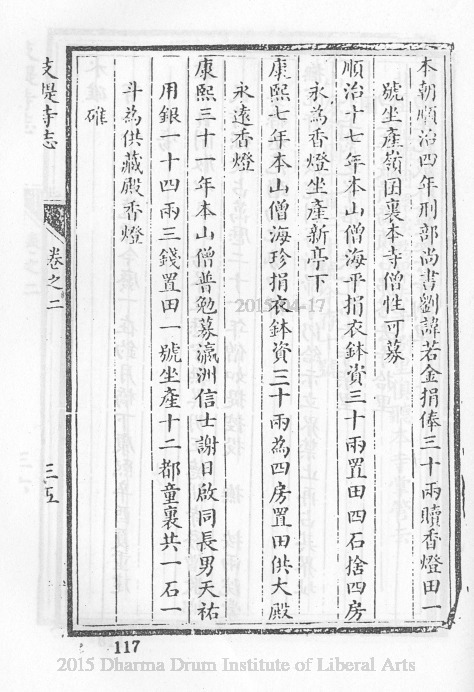 本朝順治四年刑部尚書劉諱若金捐俸三十兩贖香燈田一
號坐產嶺囝裏本寺僧性可募
順治十七年本山僧海平捐衣鉢資三十兩置田四石捨四房
永為香燈坐產新亭下
康熙七年本山僧海珍捐衣鉢資三十兩為四房置田供大殿
永遠香燈
康熙三十一年本山僧普勉募瀛洲信士謝日啟同長男天祐
用銀一十四兩三錢置田一號坐產十二都童裏共一石一
斗為供藏殿香燈
碓
支提寺志
卷之二
三五
117
2015-04-17
2015 Dharma Drum Institute of Liberal Arts